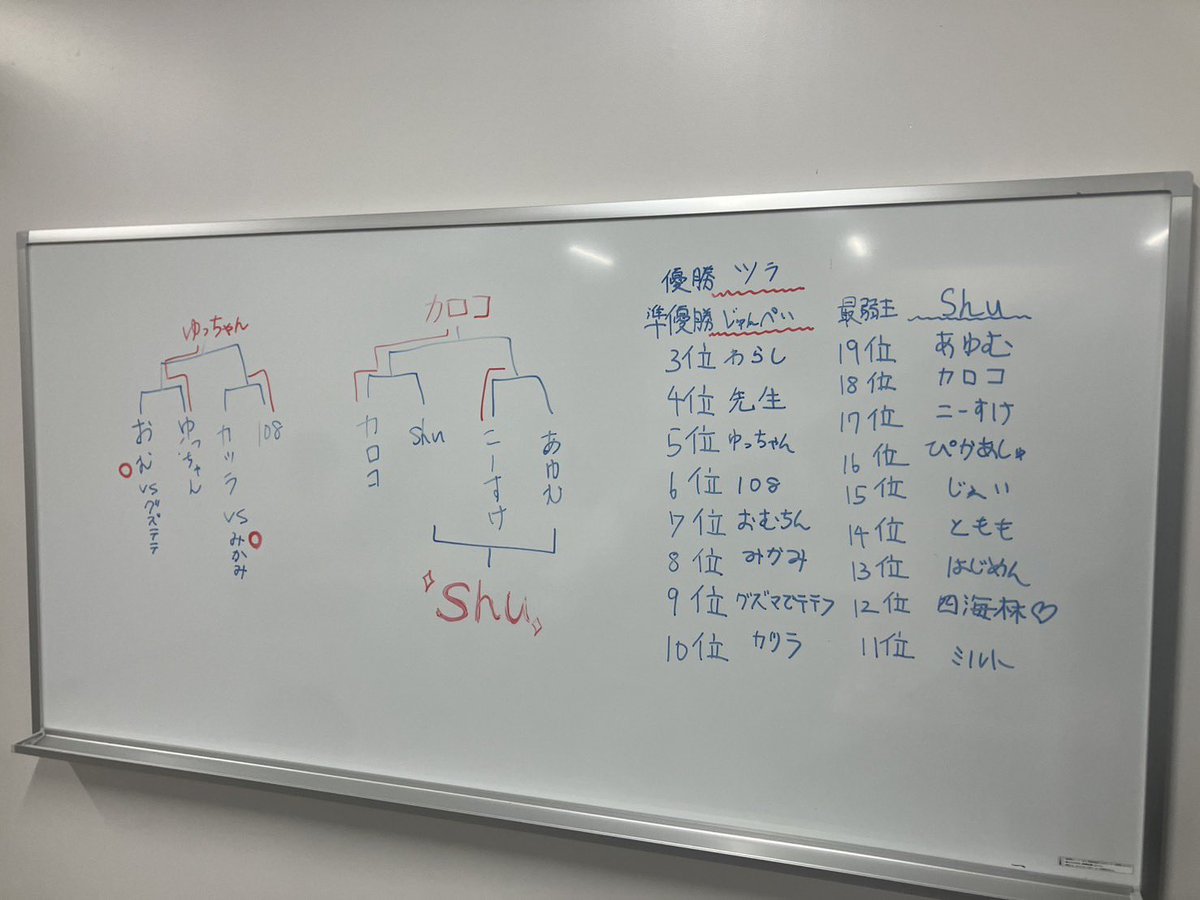 ゆっちゃん
おむ vs グズテテ
ゆっちゃん
カツラ vs みかみ
108
カロコ
カロコ
shu
こーすけ
あゆむ
Shu
優勝 ツラ
準優勝 じゅんぺい
3位 わらし
4位 先生
5位 ゆっちゃん
6位 108
7位 おむちん
8位 みかみ
9位 グズマでテテフ
10位 カツラ
最弱王 Shu
19位 あゆむ
18位 カロコ
17位 こーすけ
16位 ぴかあしゅ
15位 じぇい
14位 ともも
13位 はじめん
12位 四海林♡
11位 ミルト